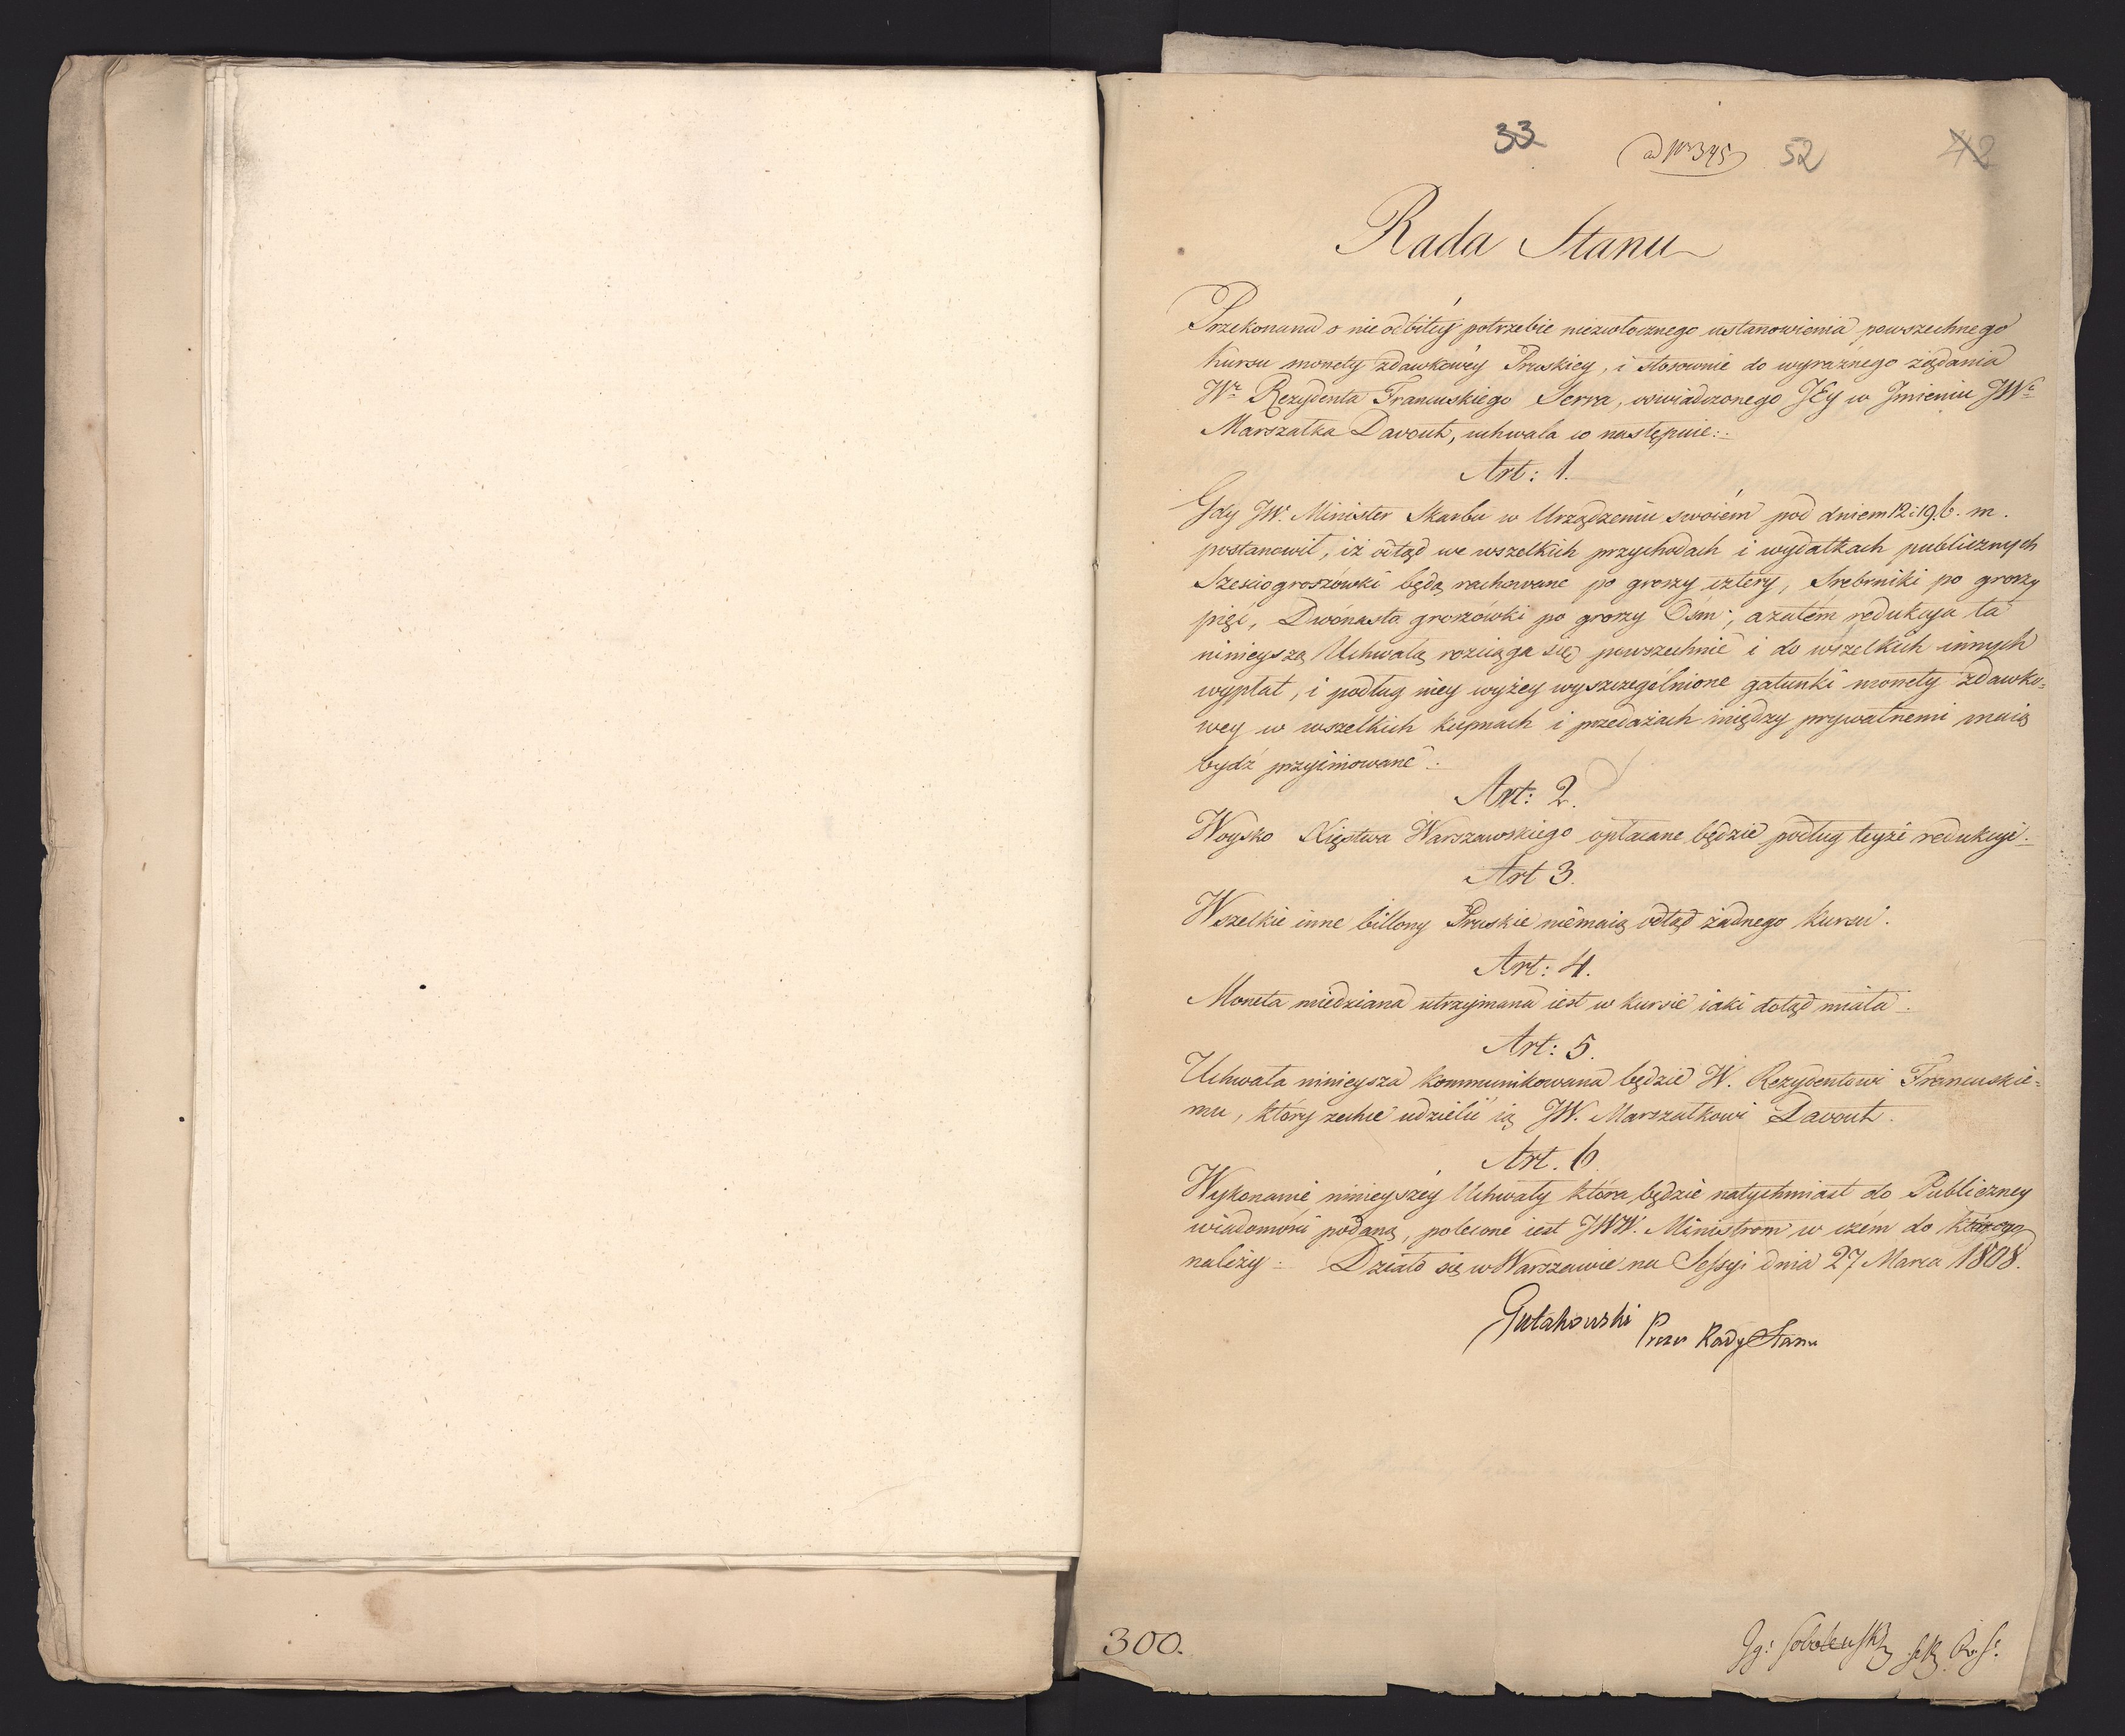 33
ad Nr 345
52
42
Rada Stanu
Przekonana o nieodbitéy potrzebie niezwłocznego ustanowienia powszechnego
kursu monety zdawkowéy Pruskiey, i stosownie do wyraźnego żądania
Wo Rezydenta Francuskiego Serra, oświadczonego JEy w Jmieniu JWo
Marszałka Davout, uchwala co następuie:
Art: 1.
Gdy JW. Minister Skarbu w Urządzeniu swoiém pod dniem 12 i 19. b. m.
postanowił, iż odtąd we wszelkich przychodach i wydatkach publicznych
Szesciogroszówki będą rachowane po groszy cztery, Srebrniki po groszy
pięć, Dwónasto groszówki po groszy Ośm; a zatém redukcya ta
ninieyszą Uchwałą rozciąga się powszechnie i do wszelkich innych
wypłat, i podług niey wyżey wyszczególnione gatunki monety zdawko=
wey w wszelkich kupnach i przedażach między prywatnemi maią
bydź przyimowane.
Art: 2.
Woysko Xięstwa Warszawskiego opłacane będzie podług teyże redukcyi.
Art 3.
Wszelkie inne billony Pruskie niemaią odtąd żadnego kursu.
Art: 4.
Moneta miedziana utrzymana iest w kursie iaki dotąd miała.
Art: 5.
Uchwała ninieysza kommunikowana będzie W. Rezydentowi Francuskie=
mu, który zechce udzielić ią JW. Marszałkowi Davout.
Art. 6.
Wykonanie ninieyszéy Uchwały która będzie natychmiast do Publiczney
wiadomości podaną, polecone iest JWW. Ministrom w czém do którego
należy. Działo się w Warszawie na Sessyi dnia 27 Marca 1808.
Gutakowski Prezes Rady Stanu
300.
Jg: Sobolewski Sek. R. S.